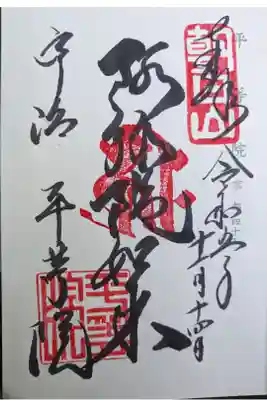 奉拝 令和五年
十一月十四日
阿弥陀如来
宇治 平等院
朝日山
平等院